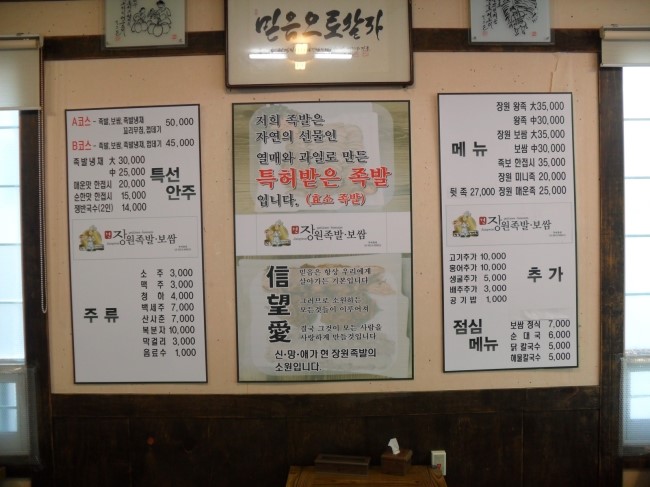 믿음으로살자
A코스 - 족발, 보쌈, 족발냉채 50,000
요리무침, 껍데기
B코스 - 족발, 보쌈, 족발냉채, 껍데기 45,000
족발냉채 大 30,000
中 25,000
매운맛 한접시 20,000
순한맛 한접시 15,000
쟁반국수(2인) 14,000
특선
안주
장원족발·보쌈
주류
소주 3,000
맥주 3,000
청하 4,000
백세주 7,000
산사춘 7,000
복분자 10,000
막걸리 3,000
음료수 1,000
저희 족발은
자연의 선물인
열매와 과일로 만든
특허받은 족발
입니다. (효소 족발)
장원족발·보쌈
信 믿음은 항상 우리에게
살아가는 기쁨입니다
望 그러므로 소원하는
모든 것들이 이루어져
愛 결국 그것이 모든 사람을
사랑하게 만들것입니다
신·망·애가 현 장원족발의
소원입니다.
메뉴
장원 왕족 大 35,000
왕족 中 30,000
장원 보쌈 大 35,000
보쌈 中 30,000
족보 한접시 35,000
장원 미니족 20,000
뒷족 27,000 장원 매운족 25,000
장원족발·보쌈
고기추가 10,000
홍어추가 10,000
생굴추가 5,000
배추추가 3,000
공기밥 1,000
추가
점심
메뉴
보쌈 정식 7,000
순대국 6,000
닭 칼국수 5,000
해물칼국수 5,000